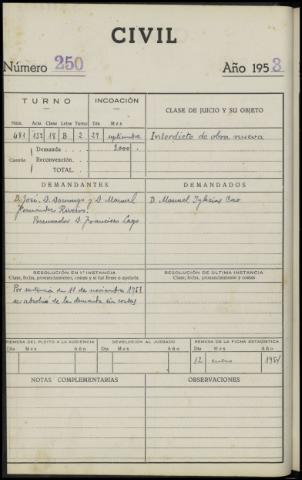 CIVIL
Número 250 Año 1953
TURNO INCOACIÓN CLASE DE JUICIO Y SU OBJETO
Núm. Acta. Clase Letra Turno Día Mes
481 152 18 B 2 29 septiembre Interdicto de obra nueva
Demanda 2000.-
Cuantía Reconvención
TOTAL
DEMANDANTES DEMANDADOS
D. José, D. Domingo y D. Manuel D. Manuel Iglesias
Fernández Riveros.
Procurador D. Francisco Lago
RESOLUCIÓN EN 1ª INSTANCIA RESOLUCIÓN DE ÚLTIMA INSTANCIA
Clase, fecha, pronunciamiento, costas y si fué firme o apelada Clase, fecha, pronunciamiento y costas
Por sentencia de 11 de noviembre 1953
se absolvió de la demanda sin costas
REMESA DEL PLEITO A LA AUDIENCIA DEVOLUCIÓN AL JUZGADO REMESA DE LA FICHA ESTADÍSTICA
Día Mes Año Día Mes Año Día Mes Año
12 enero 1954
NOTAS COMPLEMENTARIAS OBSERVACIONES